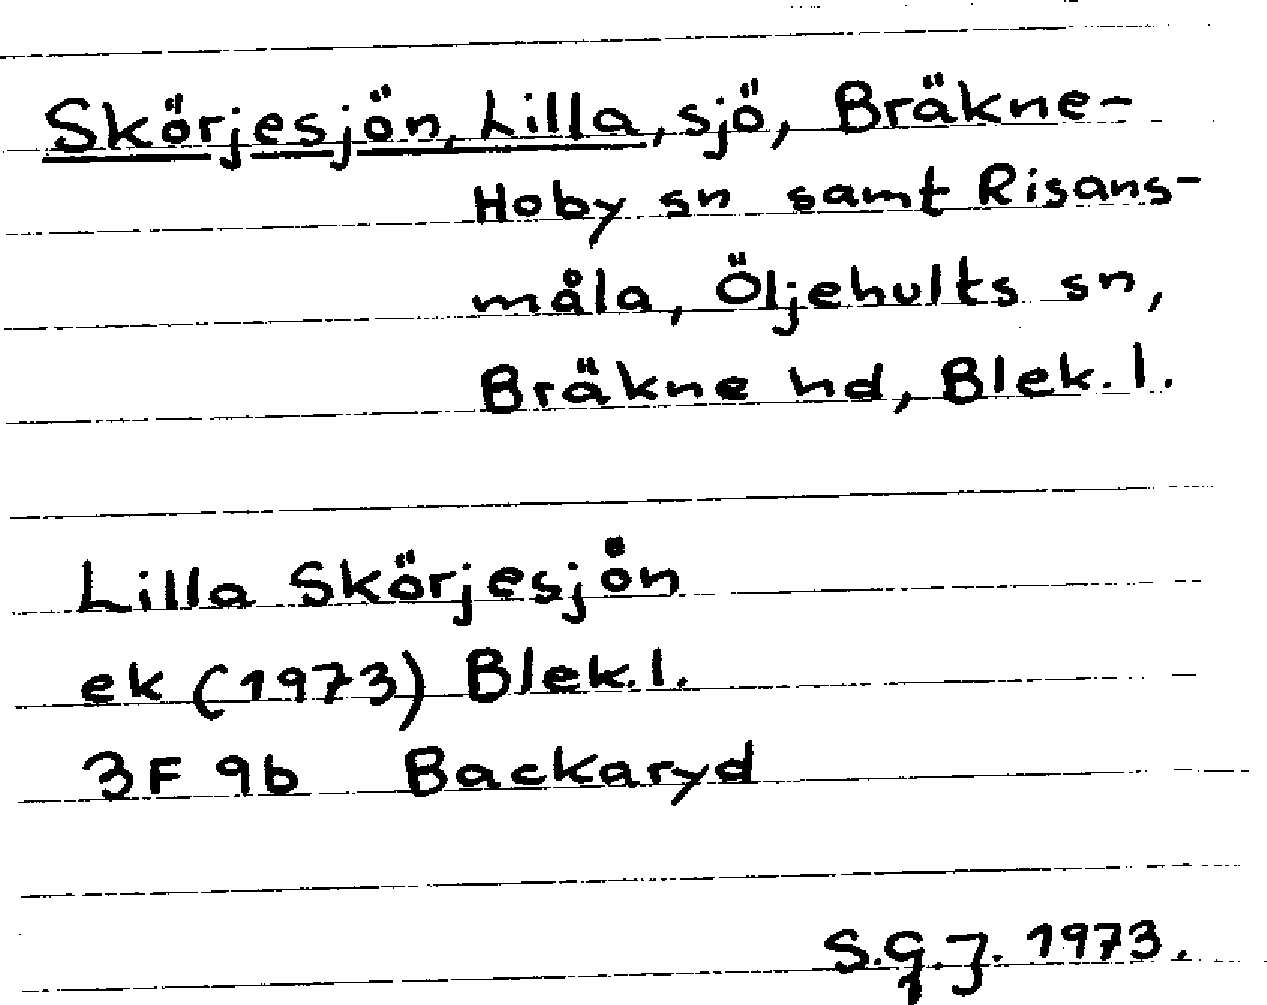 Skörjesjön, Lilla, sjö, Bräkne-
Hoby sn samt Risans-
måla, Öljehults sn,
Bräkne hd, Blek. l.
Lilla Skörjesjön
ek (1973) Blek. l.
3F 9b Backaryd
S.G.J. 1973.